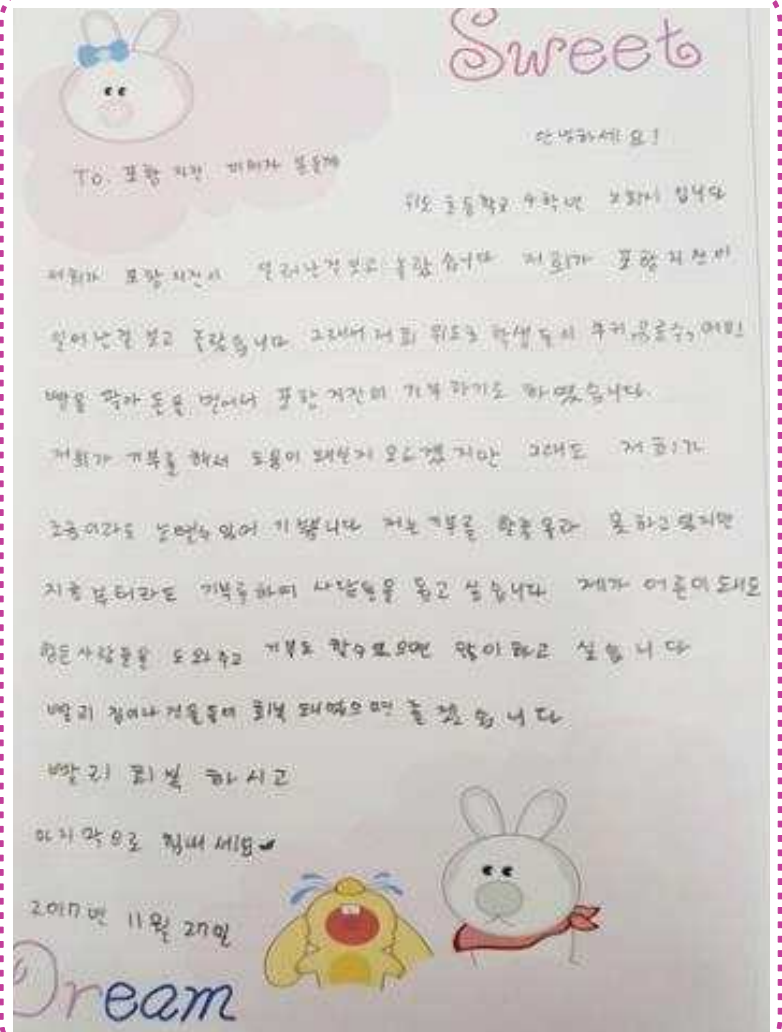 Sweet
안녕하세요!
To. 포항 지진 피해자 분들께
위도 초등학교 4학년 입니다
저희가 포항지진이 일러난걸보고 놀랐습니다 저희가 포항지진이
일어난걸 보고 놀랐습니다 그래서 저희 위도초 학생들이 쿠키,음료수,머핀
빵을 팔아 돈을 벌어서 포항 지진에 기부하기도 하였습니다.
저희가 기부를 해서 도움이 돼실지 모르겠지만 그래도 저희가
조금이라도 있어 기쁩니다 저는 기부를 못하고있지만
지금부터라도 기부를하며 사람들을 돕고 싶습니다 제가 어른이돼도
힘든사람들을 도와주고 기부도 할수있으면 많이하고 싶습니다
빨리 집이나 건물들이 회복 돼었으면 좋겠습니다
빨리 회복 하시고
마지막으로 힘내세요
2017년 11월 27일
Dream